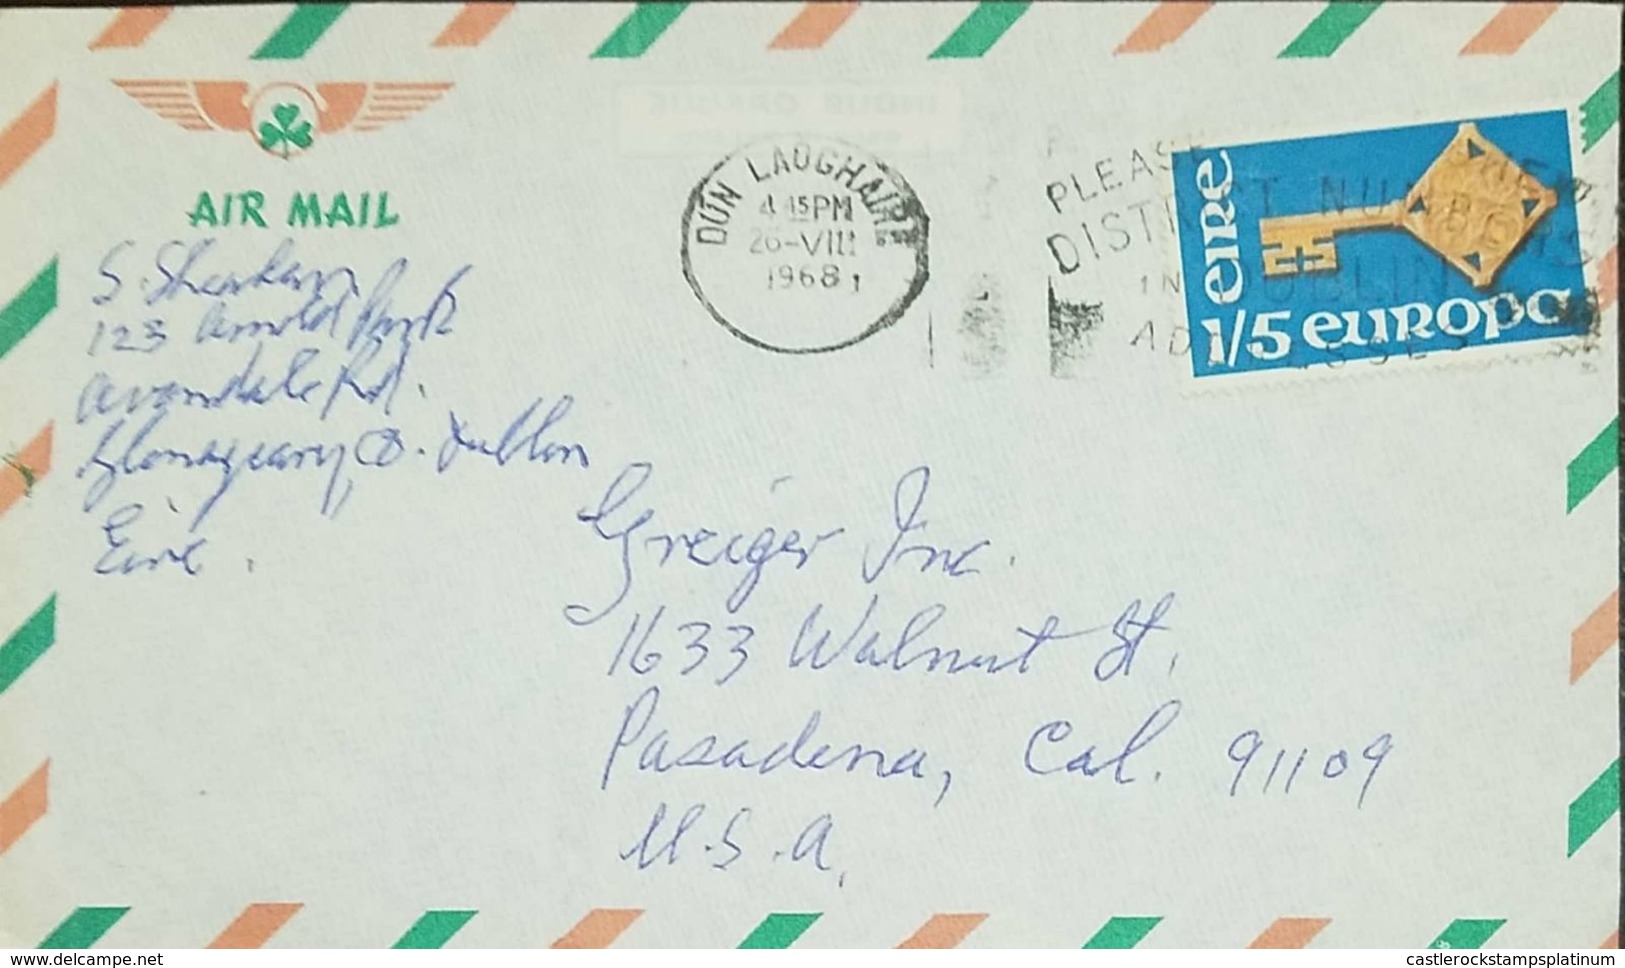 AIR MAIL
S. Sharkan
123 Arnold Park
Avondale Rd.
Glenageary, Co. Dublin
Eire.
DÚN LAOGHAIRE
4.45PM
26-VIII
1968
PLEASE
DISTRICT NUMBERS
IN DUBLIN
ADDRESSES
EIRE
1/5 EUROPA
Greiger Inc.
1633 Walnut St.
Pasadena, Cal. 91109
U.S.A.
www.delcampe.net
castlerockstampsplatinum